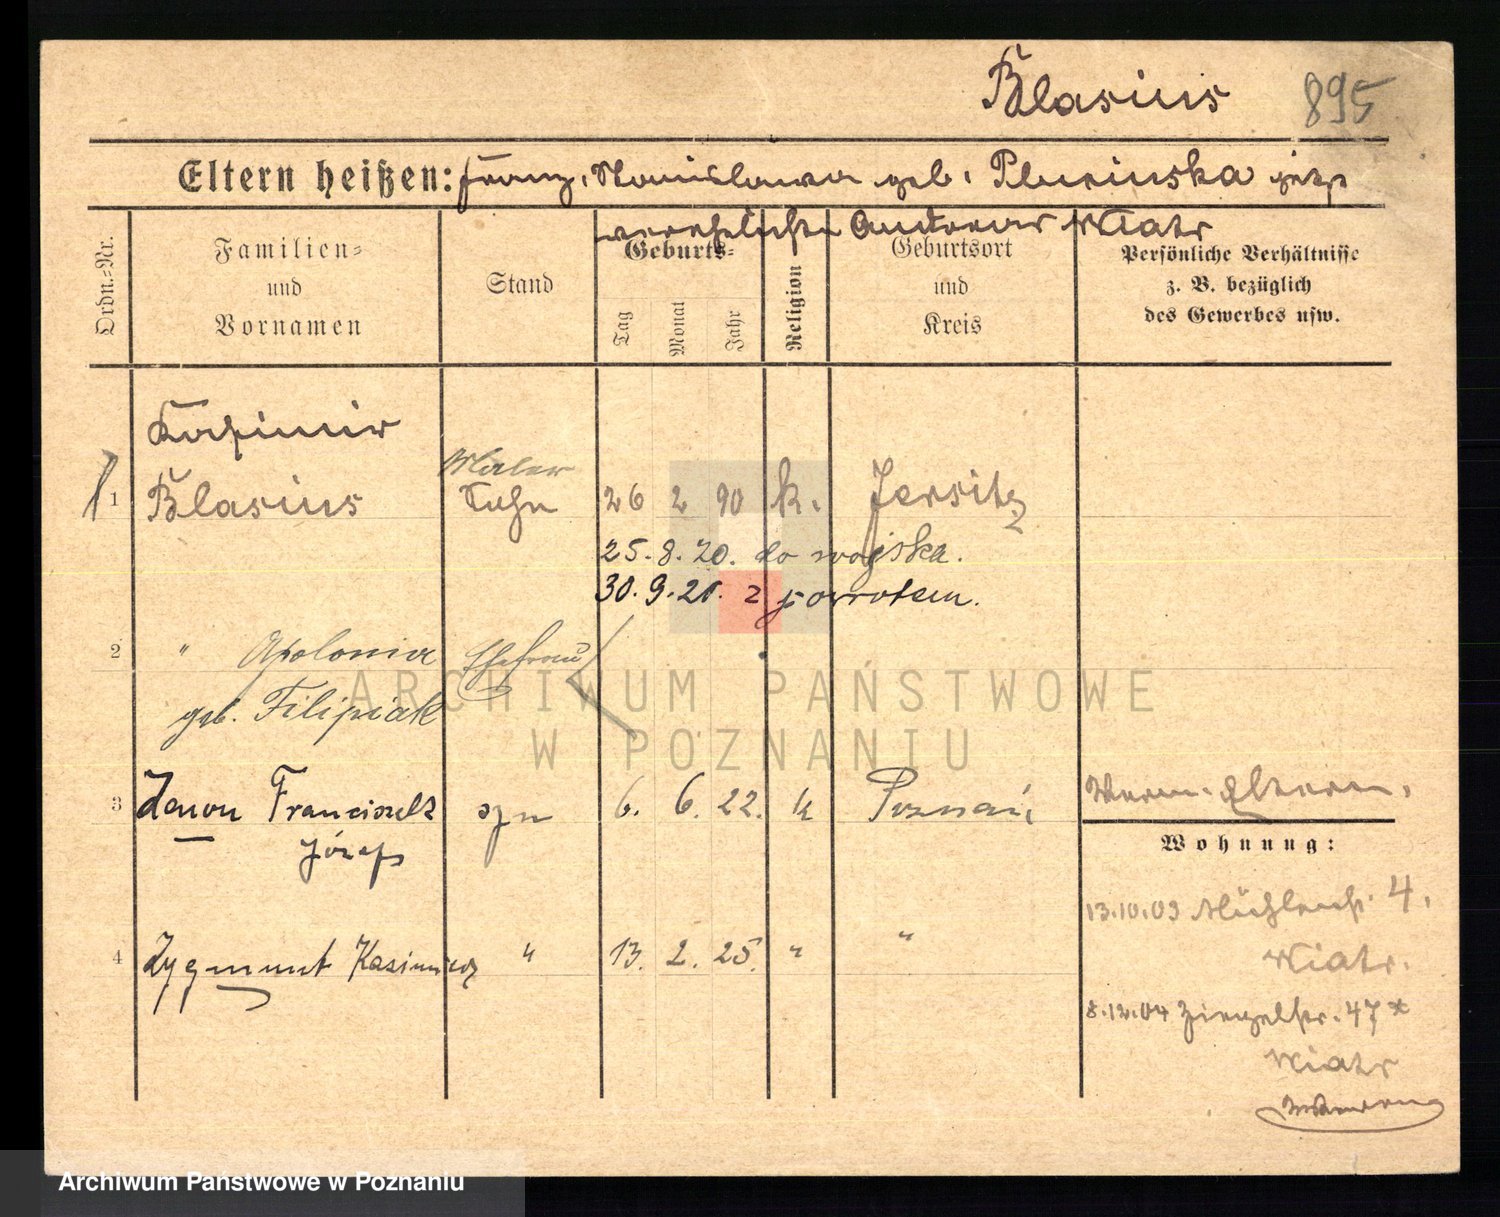 Blasius 895
Eltern heißen: Franz, Stanislawa geb. Plucinska jetzt
verehelichte Wiatr
Ordn.=Nr.
Familien=
und
Vornamen
Stand
Geburts=
Tag
Monat
Jahr
Religion
Geburtsort
und
Kreis
Persönliche Verhältnisse
z. B. bezüglich
des Gewerbes usw.
Kasimir
Maler
1 Blasius Sohn 26 2 90 k. Jersitz
25. 8. 20. do wojska.
30. 9. 21. z powrotem.
2 " Apolonia Ehefrau
geb. Filipiak
3 Zenon Franciszek syn 6. 6. 22. k Poznań
Józef
Eltern.
Wohnung:
13.10.03 Mühlenstr. 4.
Wiatr.
4 Zygmunt Kazimierz " 13. 2. 25. " "
8.12.04 Ziegelstr. 47
Wiatr
ARCHIWUM PAŃSTWOWE
W POZNANIU
Archiwum Państwowe w Poznaniu